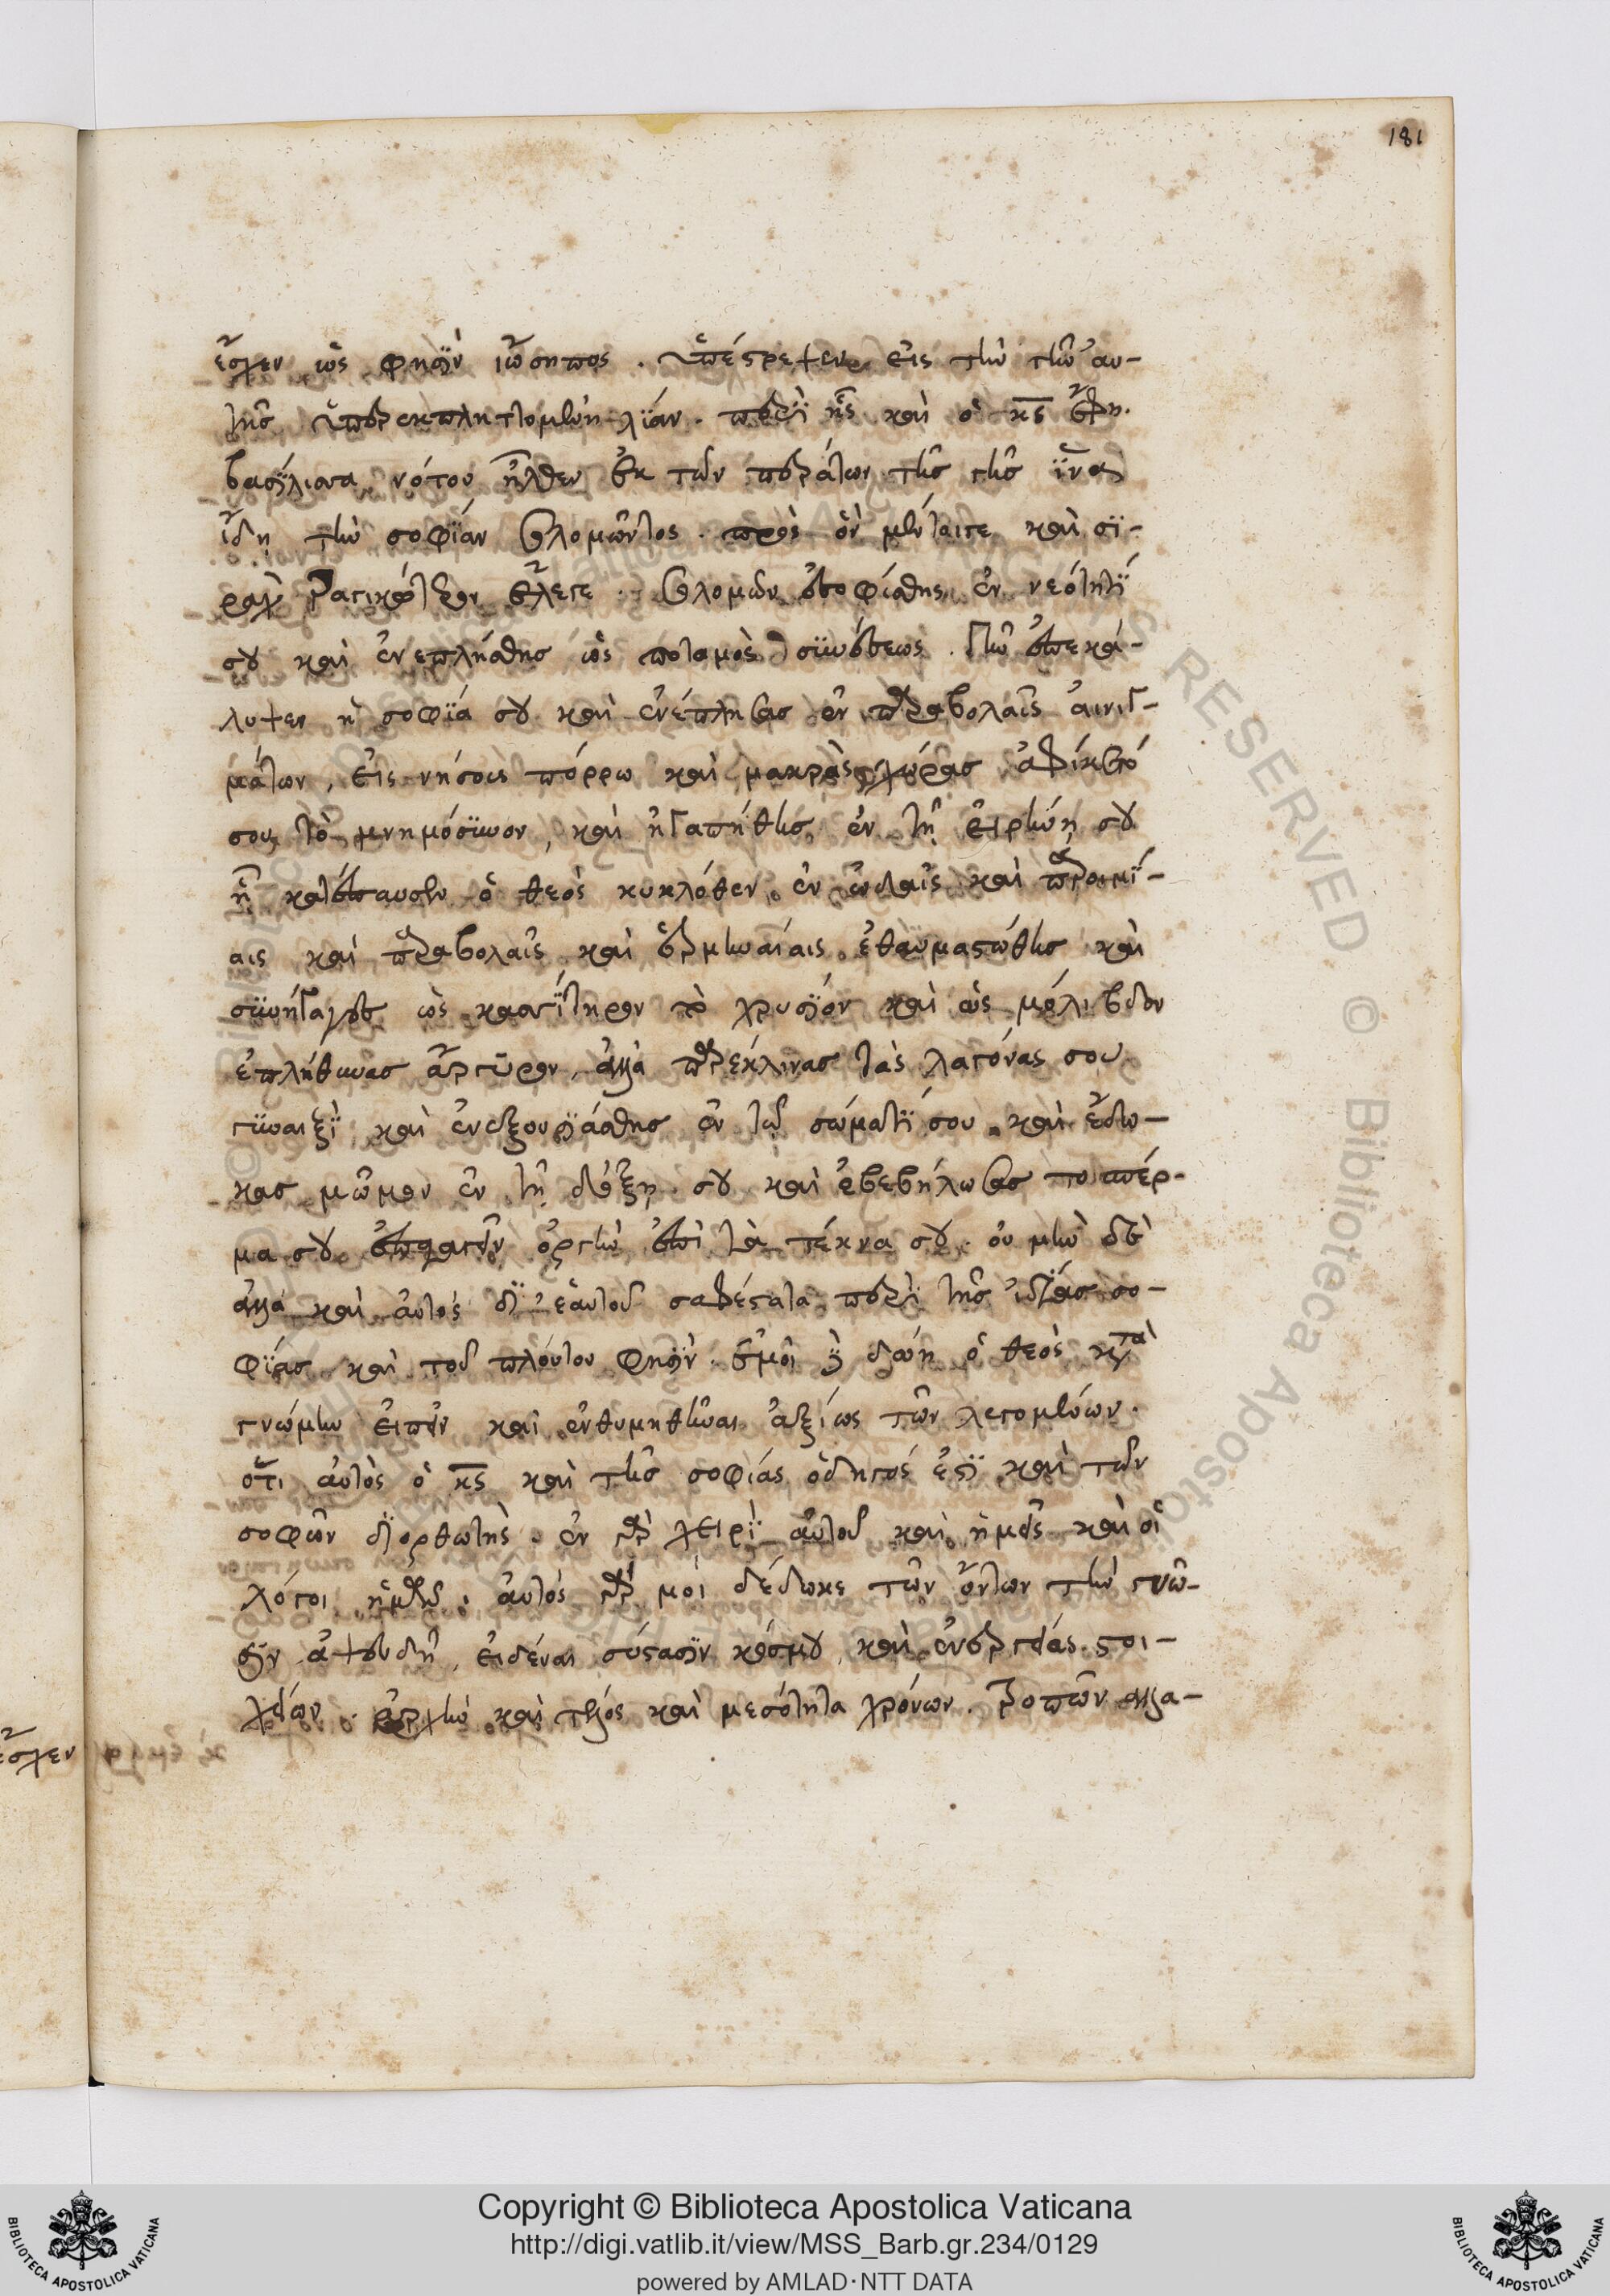 181
ἔσχεν ὥς φησϊν ἰώσηπος. ὑπέστρεψεν εἰς τὴν τῶ αυ-
τῆς ὑπερεκπληττομένη λίαν. περϊ ἧς καὶ ὁ κς ἔφη.
βασίλισσα νότου ἦλθεν ἐκ τῶν περάτων τῆς γῆς ἵνα
ἴδη τὴν σοφίαν σολομῶντος. πρὸς ὃν μένταιγε καὶ σϊ-
ραχ τραγικώτερον ἔλεγε. σολομὼν ἐσοφίσθης ἐν νεότητϊ
σου καὶ ἐνεπλήσθης ὡς ποταμὸς συνέσεως. γῆν ἐπεκά-
λυψεν ἡ σοφία σου καὶ ἐνέπλησας ἐν παραβολαῖς αἰνιγ-
μάτων, εἰς νήσους πόρρω καὶ μακρὰς χώρας ἀφίκετό
σου τὸ μνημόσυνον, καὶ ἠγαπήθης ἐν τῆ εἰρήνη σου
ἣ κατέπαυσεν ὁ θεὸς κυκλόθεν. ἐν ὠδαῖς καὶ παροιμί-
αις καὶ παραβολαῖς καὶ ἑρμηνείαις ἐθαυμαστώθης καὶ
συνήγαγες ὡς κασσίτηρον τὸ χρυσίον καὶ ὡς μόλιβδον
ἐπλήθυνας ἄργυρον, ἀλλὰ παρέκλινας τὰς λαγόνας σου
γυναιξὶ καὶ ἐνεξουσιάσθης ἐν τῷ σώματί σου. καὶ ἔδω-
κας μῶμον ἐν τῆ δόξη σου καὶ ἐβεβήλωσας το σπέρ-
μα σου ἐπαγαγεῖν ὀργὴν ἐπὶ τὰ τέκνα σου. οὐ μὴν δὲ
ἀλλὰ καὶ αὐτὸς δϊ ἑαυτοῦ σαφέστατα περὶ τῆς ἰδίας σο-
φίας καὶ τοῦ πλούτου φησϊν. ἐμοὶ δὲ δώη ὁ θεὸς κατὰ
γνώμην εἰπεῖν καὶ ἐνθυμηθῆναι ἀξίως τῶν λεγομένων.
ὅτι αὐτὸς ὁ κς καὶ τῆς σοφίας ὁδηγός ἐστϊ καὶ τῶν
σοφῶν διορθωτής. ἐν γὰρ χειρϊ αὐτοῦ καὶ ἡμεῖς καὶ οἱ
λόγοι ἡμῶν. αὐτὸς γάρ μοι δέδωκε τῶν ὄντων τὴν γνῶ-
σϊν ἀψευδῆ, εἰδέναι σύστασϊν κόσμου, καὶ ἐνεργείας στοι-
χείων. ἀρχὴν καὶ τέλος καὶ μεσότητα χρόνων. τροπῶν ἀλλα-
ἔσχεν
Copyright © Biblioteca Apostolica Vaticana
http://digi.vatlib.it/view/MSS_Barb.gr.234/0129
powered by AMLAD·NTT DATA